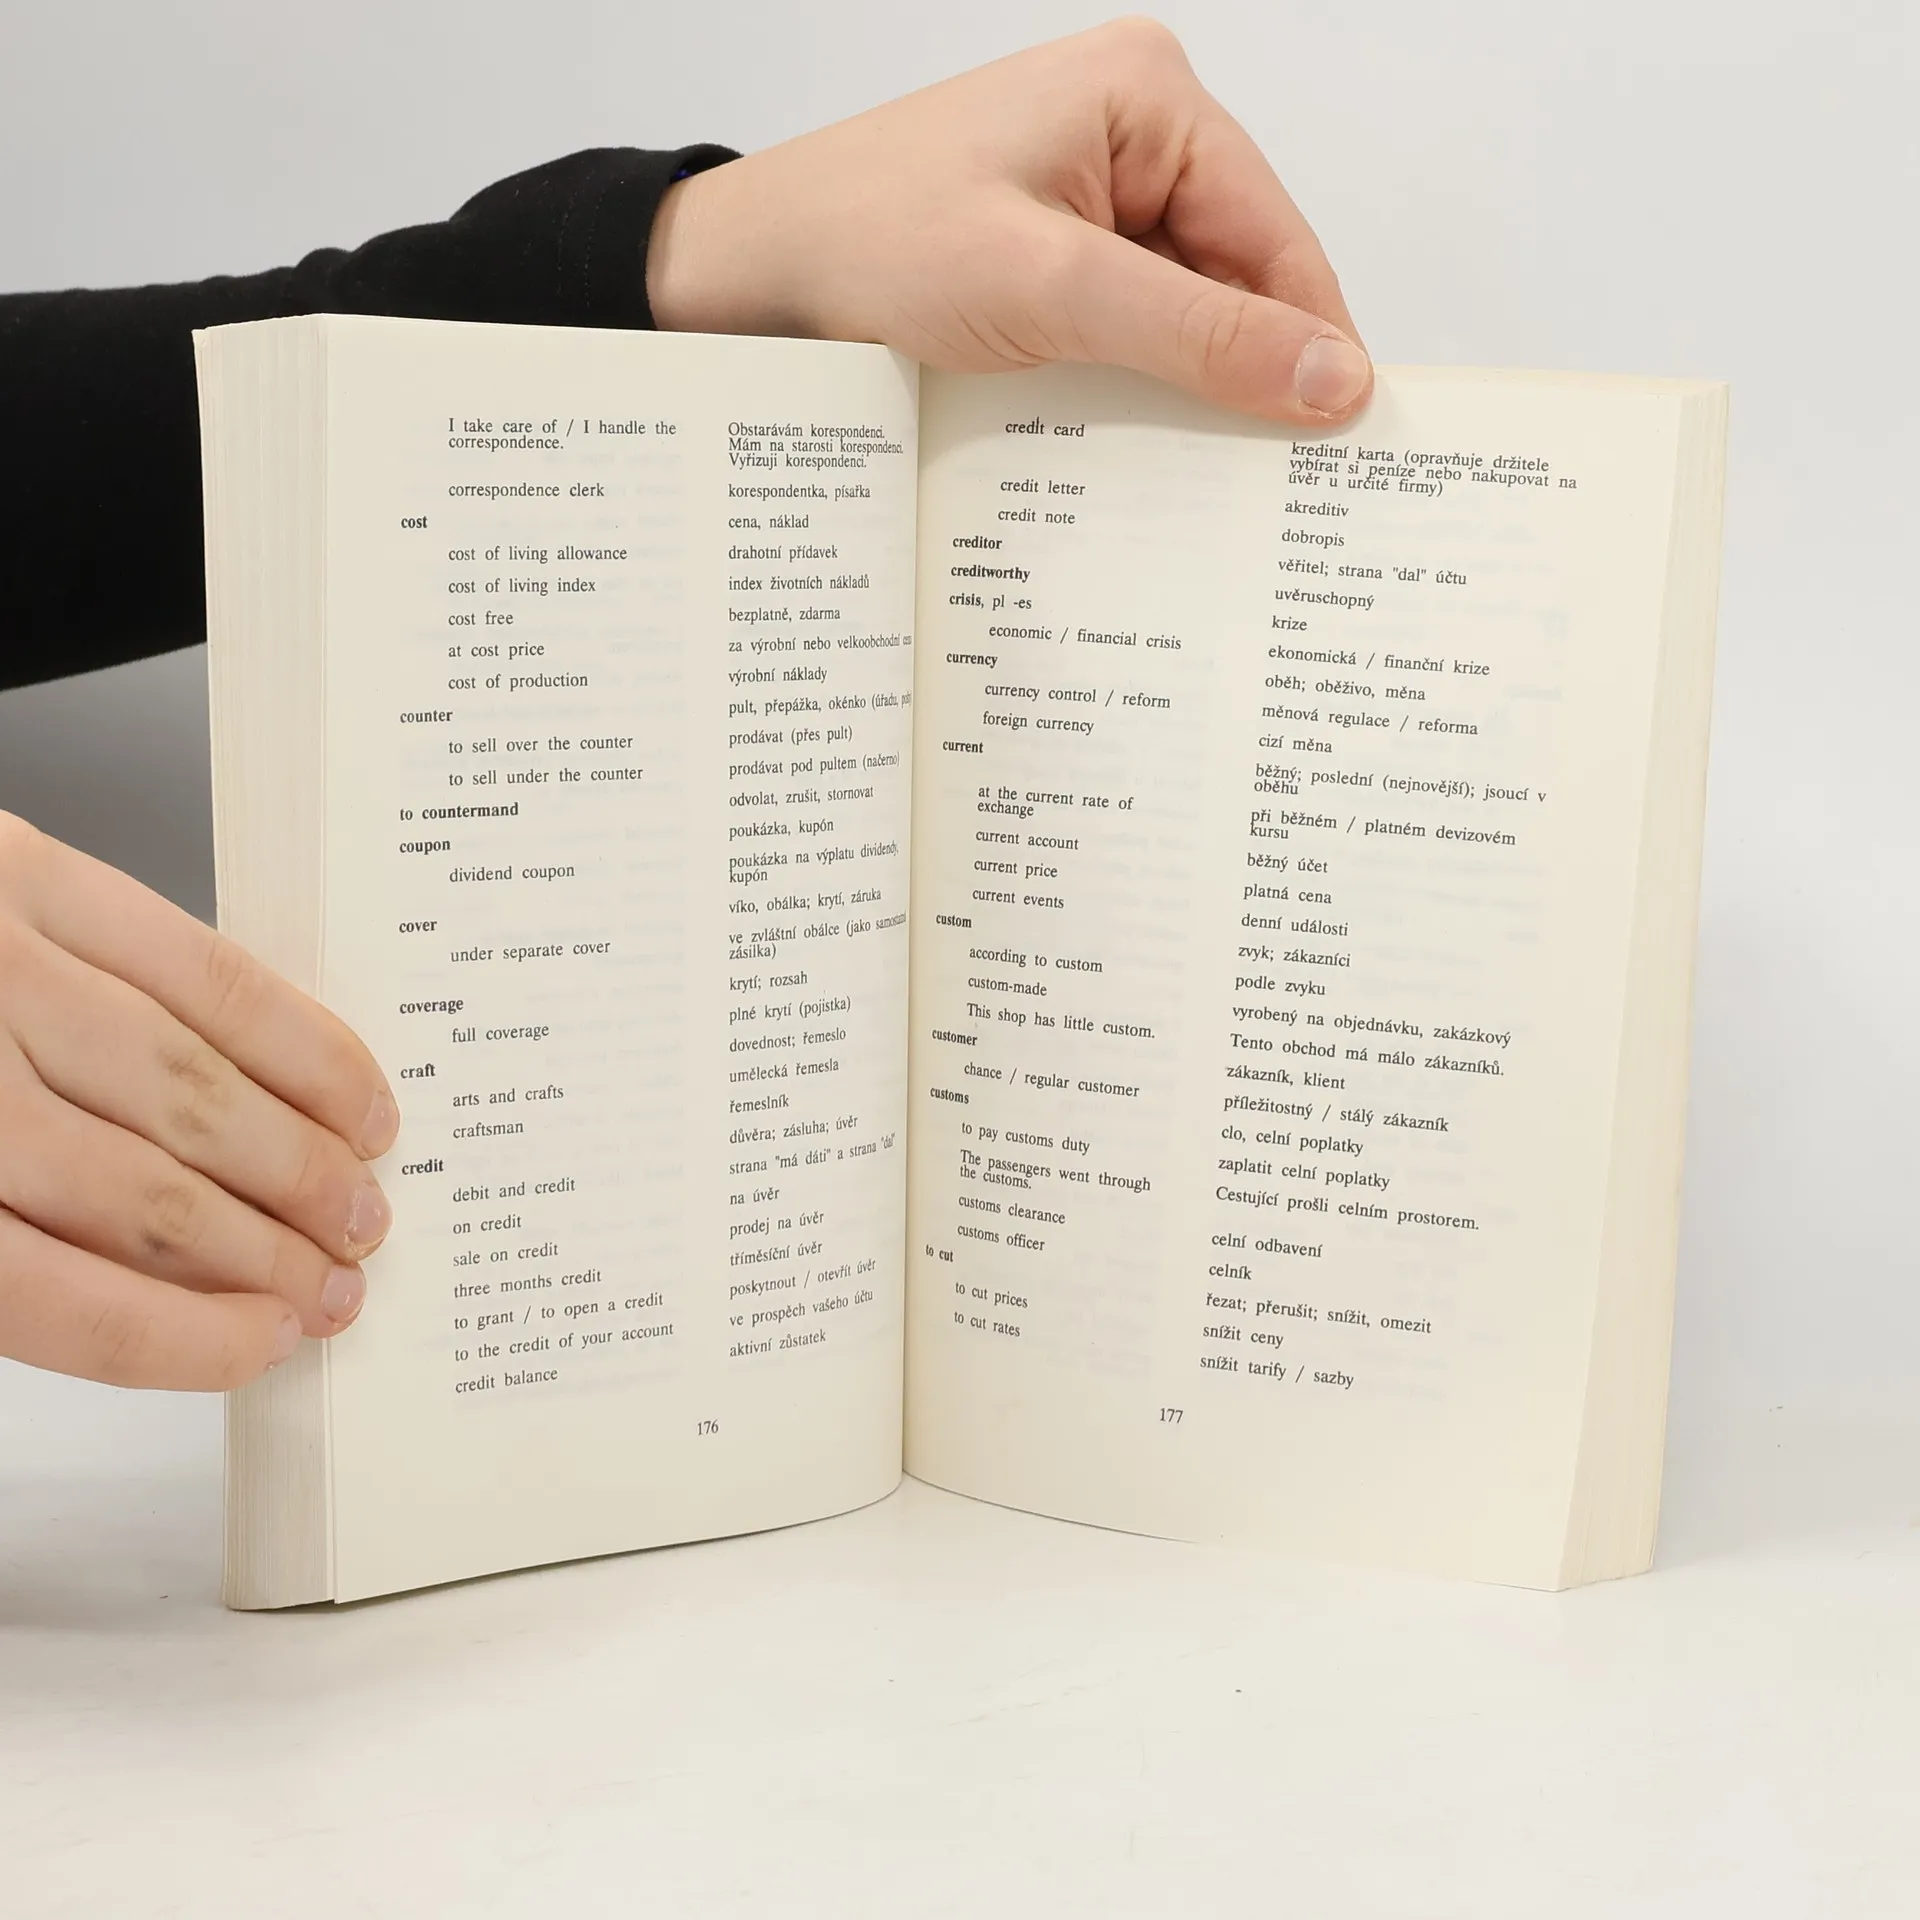 I take care of / I handle the Obstarávám korespondenci.
correspondence. Mám na starosti korespondenci.
Vyřizuji korespondenci.
correspondence clerk korespondentka, písařka
cost cena, náklad
cost of living allowance drahotní přídavek
cost of living index index životních nákladů
cost free bezplatně, zdarma
at cost price za výrobní nebo velkoobchodní
cost of production výrobní náklady
counter pult, přepážka, okénko (úřadu,
to sell over the counter prodávat (přes pult)
to sell under the counter prodávat pod pultem (načerno)
to countermand odvolat, zrušit, stornovat
coupon poukázka, kupón
dividend coupon poukázka na výplatu dividendy,
kupón
cover víko, obálka; krytí, záruka
under separate cover ve zvláštní obálce (jako samostatná
zásilka)
coverage krytí; rozsah
full coverage plné krytí (pojistka)
craft dovednost; řemeslo
arts and crafts umělecká řemesla
craftsman řemeslník
credit důvěra; zásluha; úvěr
debit and credit strana "má dáti" a strana "dal"
on credit na úvěr
sale on credit prodej na úvěr
three months credit tříměsíční úvěr
to grant / to open a credit poskytnout / otevřít úvěr
to the credit of your account ve prospěch vašeho účtu
credit balance aktivní zůstatek
176
credit card kreditní karta (opravňuje držitele
vybírat si peníze nebo nakupovat na
úvěr u určité firmy)
credit letter akreditiv
credit note dobropis
creditor věřitel; strana "dal" účtu
creditworthy uvěruschopný
crisis, pl -es krize
economic / financial crisis ekonomická / finanční krize
currency oběh; oběživo, měna
currency control / reform měnová regulace / reforma
foreign currency cizí měna
current běžný; poslední (nejnovější); jsoucí v
oběhu
at the current rate of při běžném / platném devizovém
exchange kursu
current account běžný účet
current price platná cena
current events denní události
custom zvyk; zákazníci
according to custom podle zvyku
custom-made vyrobený na objednávku, zakázkový
This shop has little custom. Tento obchod má málo zákazníků.
customer zákazník, klient
chance / regular customer příležitostný / stálý zákazník
customs clo, celní poplatky
to pay customs duty zaplatit celní poplatky
The passengers went through Cestující prošli celním prostorem.
the customs.
customs clearance celní odbavení
customs officer celník
to cut řezat; přerušit; snížit, omezit
to cut prices snížit ceny
to cut rates snížit tarify / sazby
177